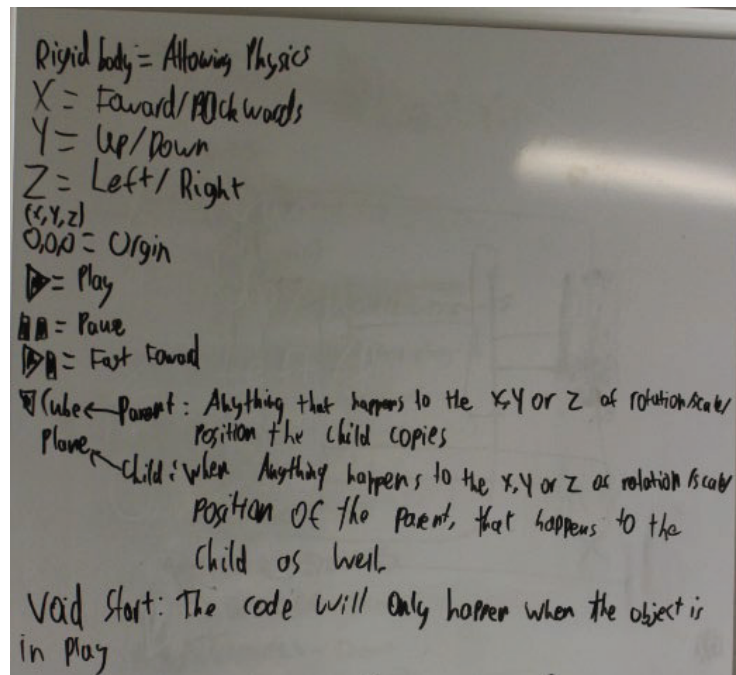 Rigid body = Allowing Physics
X = Foward/Backwards
Y = Up/Down
Z = Left/Right
(x,Y,z)
0,0,0 = Orgin
= Play
= Pause
= Fast Foward
Cube ← Parent: Anything that happens to the X,Y or Z of rotation/scale/
Position the child copies
Plane ← Child: When Anything happens to the X,Y or Z of rotation/scale/
Position OF the Parent, that happens to the
Child as well.
Void Start: The code will Only happen when the object is
in Play